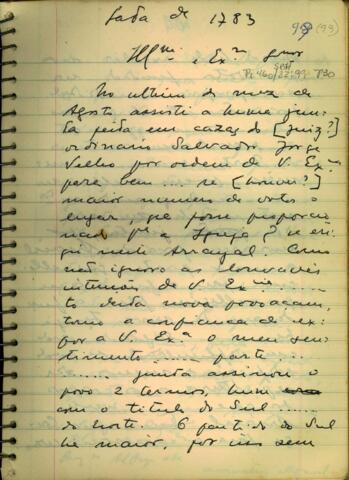 Sada de 1783
99 (93)
Illmo e Exmo Snor
No ultimo do mez de
Agosto assisti a huma jun-
ta feita em cazas do [Juiz?]
ordinario Salvador Jorge
Velho por ordem de V. Exa
para bem .... se [houver?]
maior numero de votos o
lugar, q̃ fosse proporcio-
nado pa a Igreja? se eri-
gir neste Arrayal. Como
não ignoro as louvaveis
intensões de V. Excia ......
to desta nova povoacam,
tomo a confiança de ex-
por a V. Exa o meu sen-
timento ........ parte ...
....... junta assinou o
povo 2 termos, hum
com o titulo do Sul ......
do Norte. O partido do Sul
he maior, por isso sem